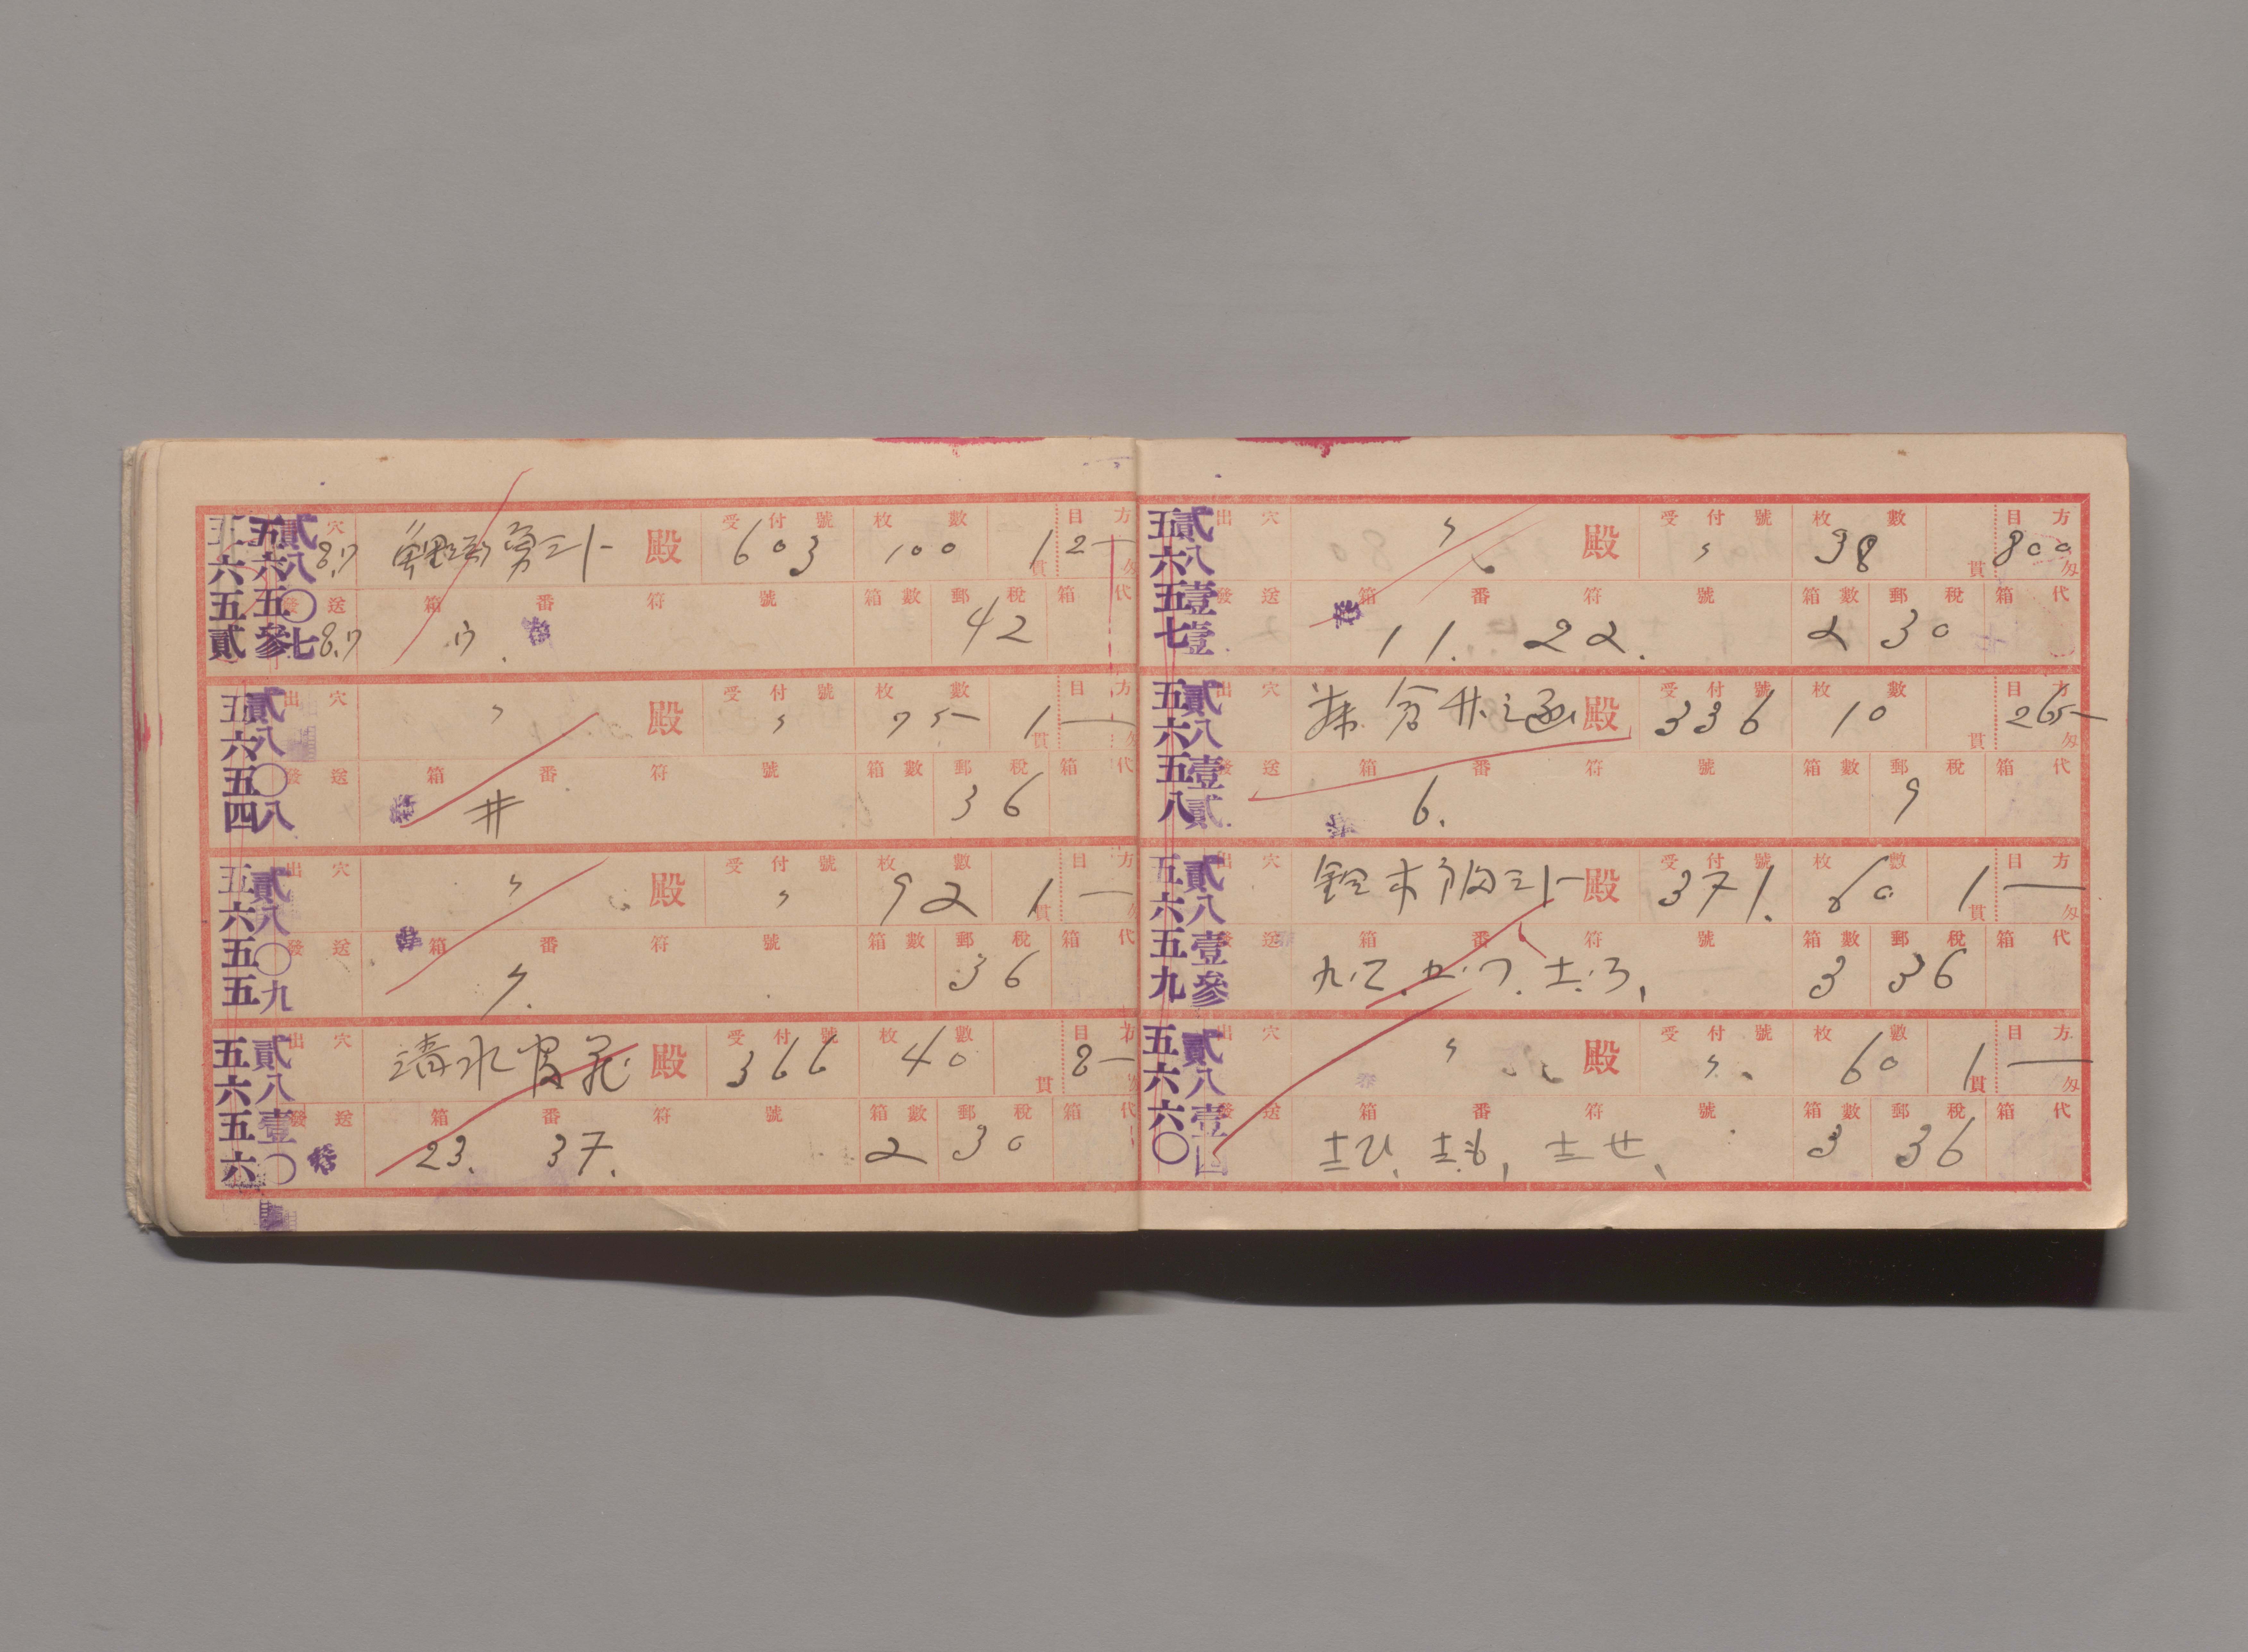 穴 殿 受付號 603 枚數 100 1貫 目方 2一 匁
8.7
五六五貳 五六五參 貳八〇七
發送 8.7 箱番符號 ウ. 箱數 郵稅 42 箱代
五六五四 貳八〇八
出穴 〃 殿 受付號 〃 枚數 75 1貫 目方 一 匁
發送 箱番符號 井 箱數 郵稅 36 箱代
五六五五 貳八〇九
出穴 〃 殿 受付號 〃 枚數 92 1貫 目方 一 匁
發送 箱番符號 ク. 箱數 郵稅 36 箱代
五六五六 貳八壹〇
出穴 清水 殿 受付號 366 枚數 40 貫 目方 8一 匁
發送 箱番符號 23. 37. 箱數 2 郵稅 30 箱代
五六五七 貳八壹壹
出穴 〃 殿 受付號 〃 枚數 38 貫 目方 800 匁
發送 箱番符號 11. 22. 箱數 2 郵稅 30 箱代
五六五八 貳八壹貳
出穴 殿 受付號 336 枚數 10 貫 目方 265 匁
發送 箱番符號 6. 箱數 郵稅 9 箱代
五六五九 貳八壹參
出穴 鈴木 殿 受付號 371. 枚數 60 1貫 目方 一 匁
發送 箱番符號 箱數 3 郵稅 36 箱代
五六六〇 貳八壹四
出穴 〃 殿 受付號 〃 枚數 60 1貫 目方 一 匁
發送 箱番符號 箱數 3 郵稅 36 箱代